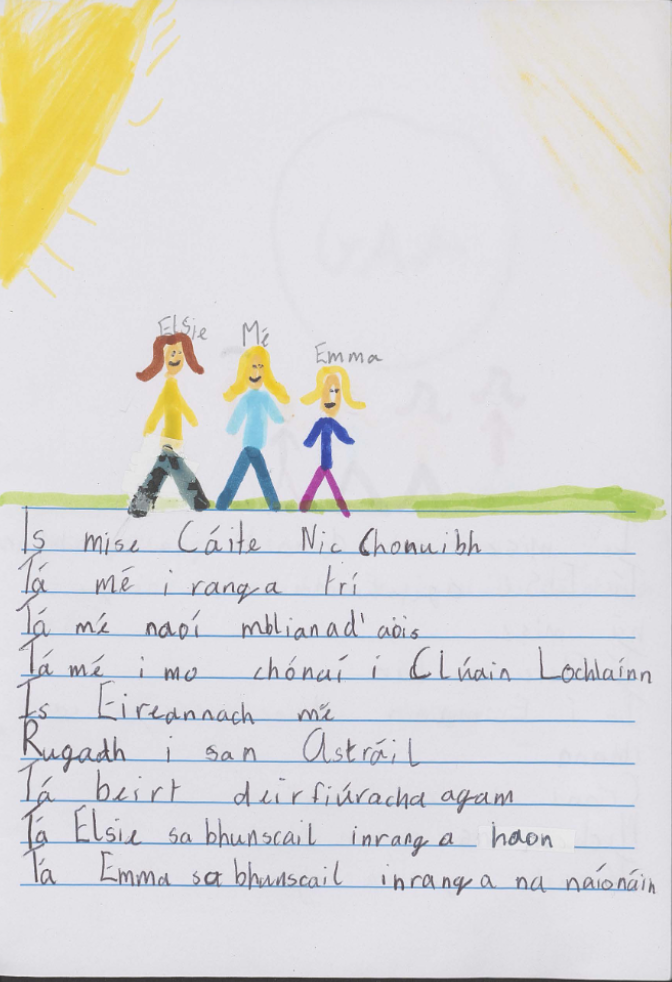 Elsie
Mé
Emma
Is mise Cáite Nic Chonuibh
Tá mé i rang a trí
Tá mé naoí mblianad' aois
Tá mé i mo chónaí i Clúain Lochlainn
Is Eireannach mé
Rugadh i san Astráil
Tá beirt deirfiúracha agam
Tá Elsie sa bhunscail inrang a haon
Tá Emma sa bhunscail inrang a na naíonáin